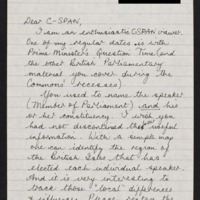 Dear C-SPAN,
I am an enthusiastic CSPAN viewer.
One of my regular dates is with
Prime Minister's Question Time (and
the other British Parliamentary
material you cover during the
Commons' recesses)
You used to name the speaker
(Member of Parliament) and his
or her constituency. I wish you
had not discontinued that useful
information. With a simple map
one can identify the region of
the British Isles that has
elected each individual speaker.
And it is very interesting to
track those "local" differences